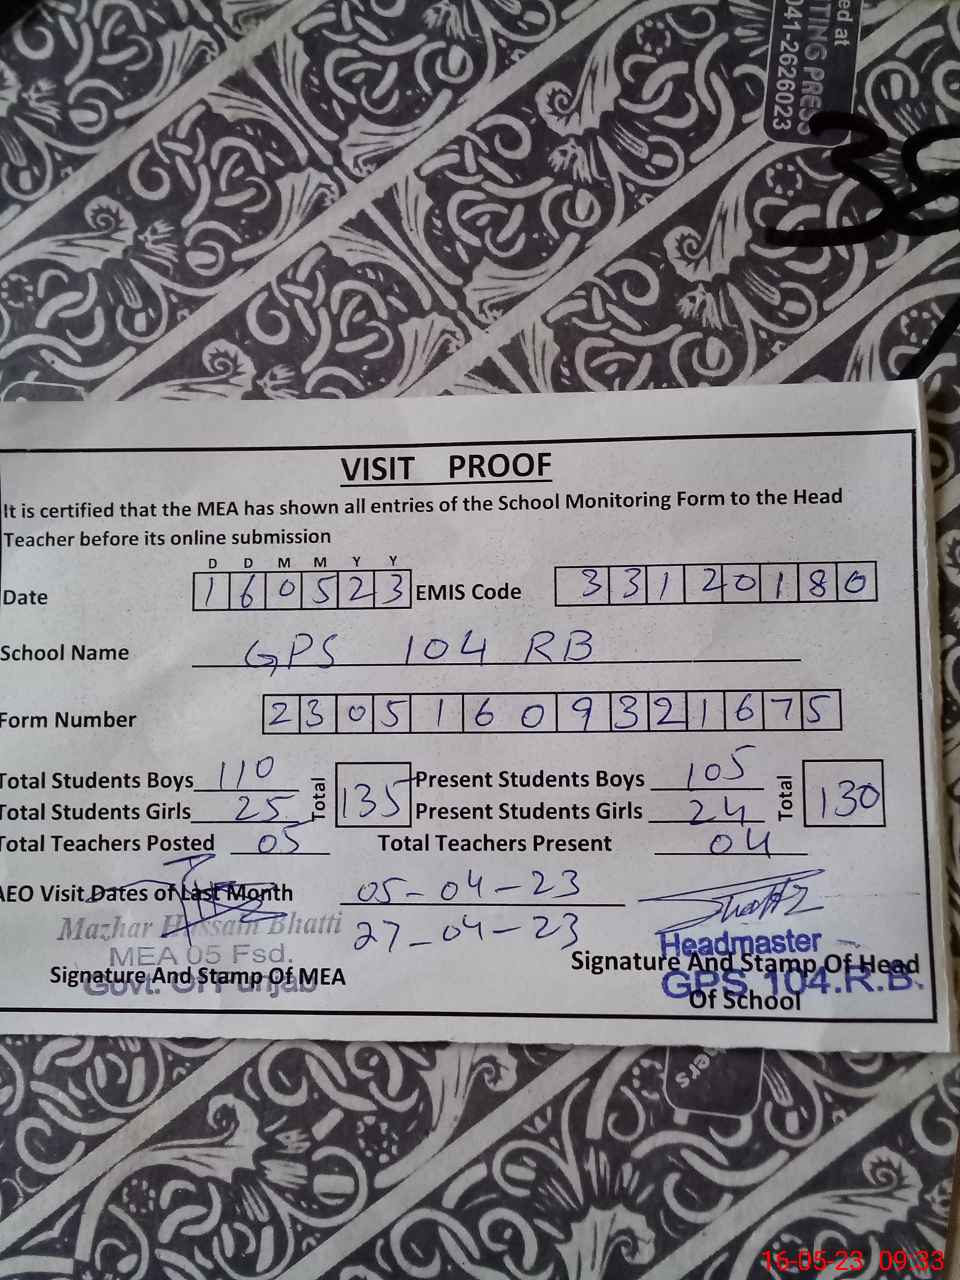 ed at
TING PRESS
041-2626023
38
VISIT PROOF
It is certified that the MEA has shown all entries of the School Monitoring Form to the Head
Teacher before its online submission
D D M M Y Y
Date 1 6 0 5 2 3 EMIS Code 3 3 1 2 0 1 8 0
School Name GPS 104 RB
Form Number 2 3 0 5 1 6 0 9 3 2 1 6 7 5
Total Students Boys 110 Total 135 Present Students Boys 105 Total 130
Total Students Girls 25 Present Students Girls 24
Total Teachers Posted 05 Total Teachers Present 04
AEO Visit Dates of Last Month 05-04-23
27-04-23
Mazhar Hussain Bhatti
MEA 05 Fsd.
Govt. Of Punjab
Signature And Stamp Of MEA
Headmaster
GPS 104.R.B.
Signature And Stamp Of Head
Of School
16-05-23 09:33